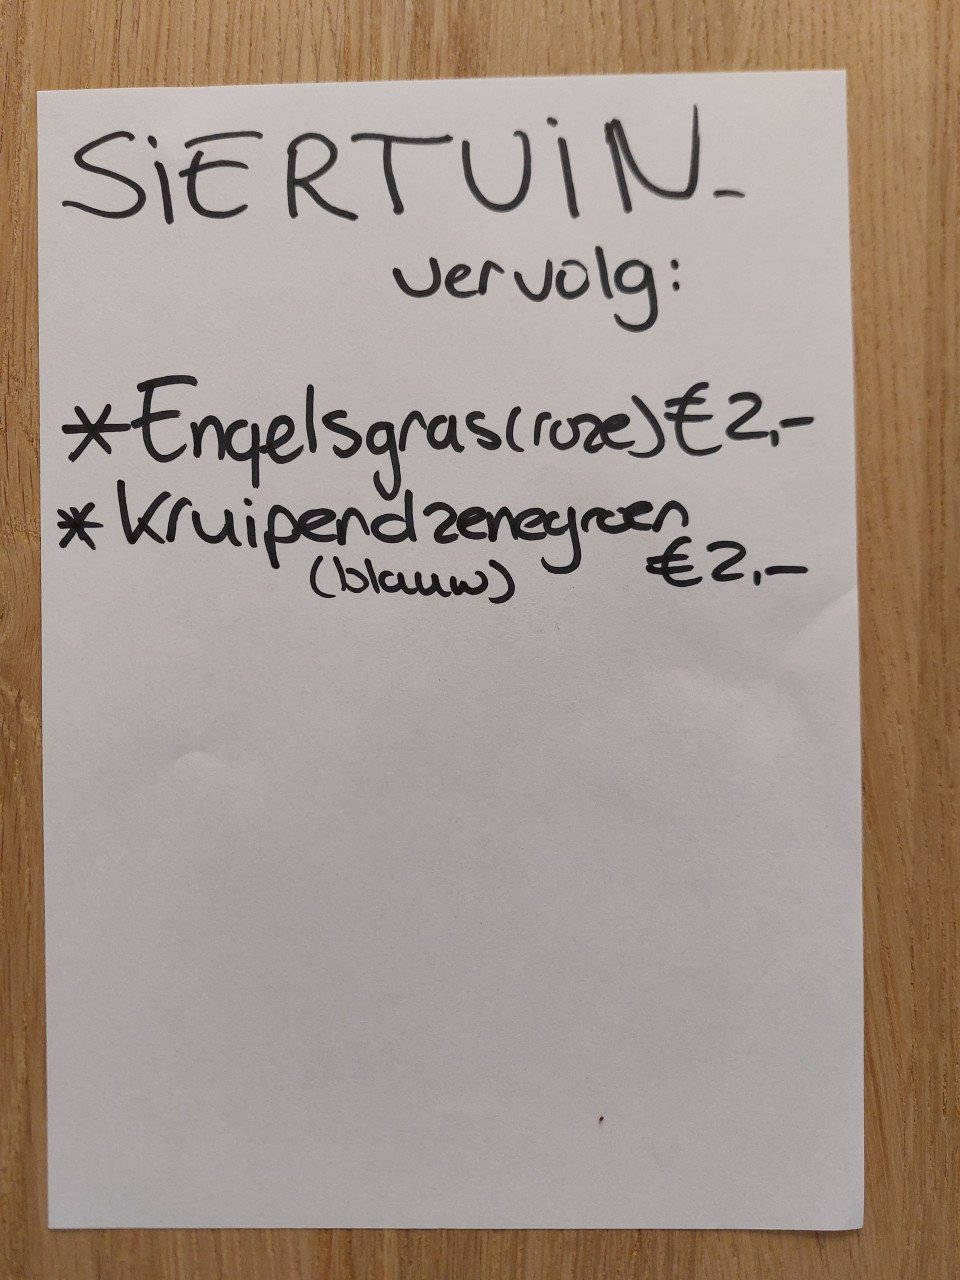 SiERTUiN-
vervolg:
*Engelsgras(roze)€2,-
*Kruipendzenegroen
(blauw) €2,-